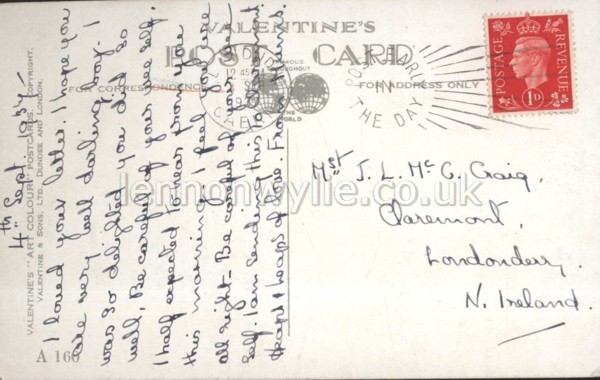 VALENTINE'S
POST CARD
FAMOUS THROUGHOUT THE WORLD
FOR CORRESPONDENCE
FOR ADDRESS ONLY
POST EARLY
IN
THE DAY
POSTAGE
REVENUE
1D
VALENTINE'S "ART COLOUR" POSTCARDS, COPYRIGHT.
VALENTINE & SONS, LTD. DUNDEE AND LONDON.
A 166
4th Sept.
I loved your letter. I hope you
are very well darling boy I
was so delighted you did so
well, Be careful of your wee self.
I half expected to hear from you
this morning I feel you are
all right – Be careful of your wee
self. I am sending this to Claremont
Heaps & heaps of love. From
Mstr J. L. Mc C. Craig,
Claremont,
Londonderry.
N. Ireland.
lennonwylie.co.uk